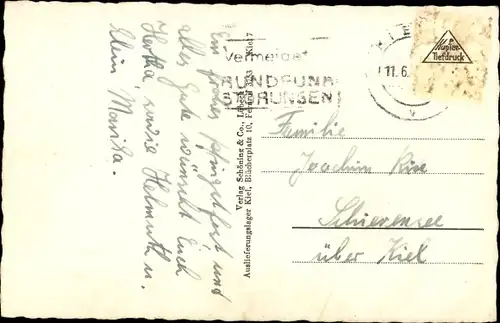 Ein frohes Pfingstfest und
alles Gute wünscht Euch
Hertha, sowie Helmuth u.
Klein Monika.
Verlag Schöning & Co., Lübeck
Auslieferungslager Kiel, Blücherplatz 10, Fernruf Kiel 7
Vermeidet
RUNDFUNK
STÖRUNGEN
11.6.
Kupfer-
Tiefdruck
Familie
Joachim
Schierensee
über Kiel